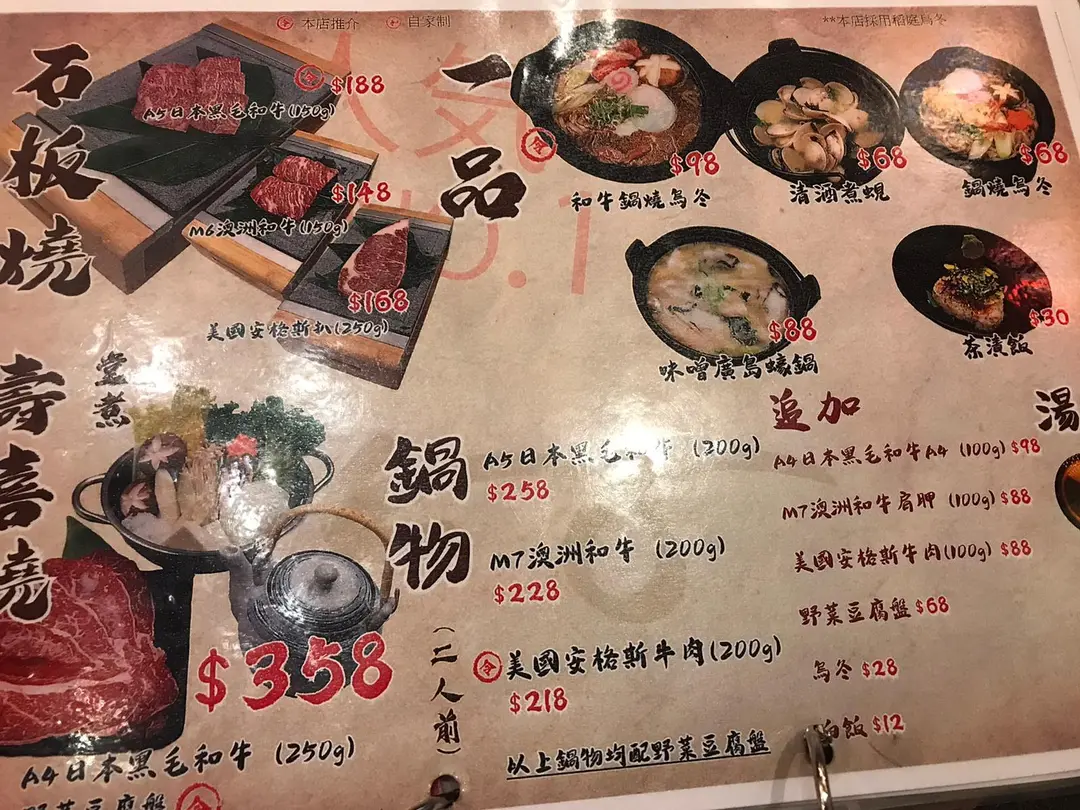 本店推介 自家制
**本店採用稻庭烏冬
人気
No.1
石板燒
A5日本黑毛和牛(150g)
$188
M6澳洲和牛(150g)
$148
美國安格斯扒(250g)
$168
一品
和牛鍋燒烏冬
$98
清酒煮蜆
$68
鍋燒烏冬
$68
味噌廣島蠔鍋
$88
茶漬飯
$30
壽喜燒
堂煮
$358
A4日本黑毛和牛 (250g)
野菜豆腐盤
鍋物
(二人前)
A5日本黑毛和牛 (200g)
$258
M7澳洲和牛 (200g)
$228
美國安格斯牛肉(200g)
$218
以上鍋物均配野菜豆腐盤
追加
A4日本黑毛和牛A4 (100g) $98
M7澳洲和牛肩胛 (100g) $88
美國安格斯牛肉(100g) $88
野菜豆腐盤 $68
烏冬 $28
白飯 $12
湯